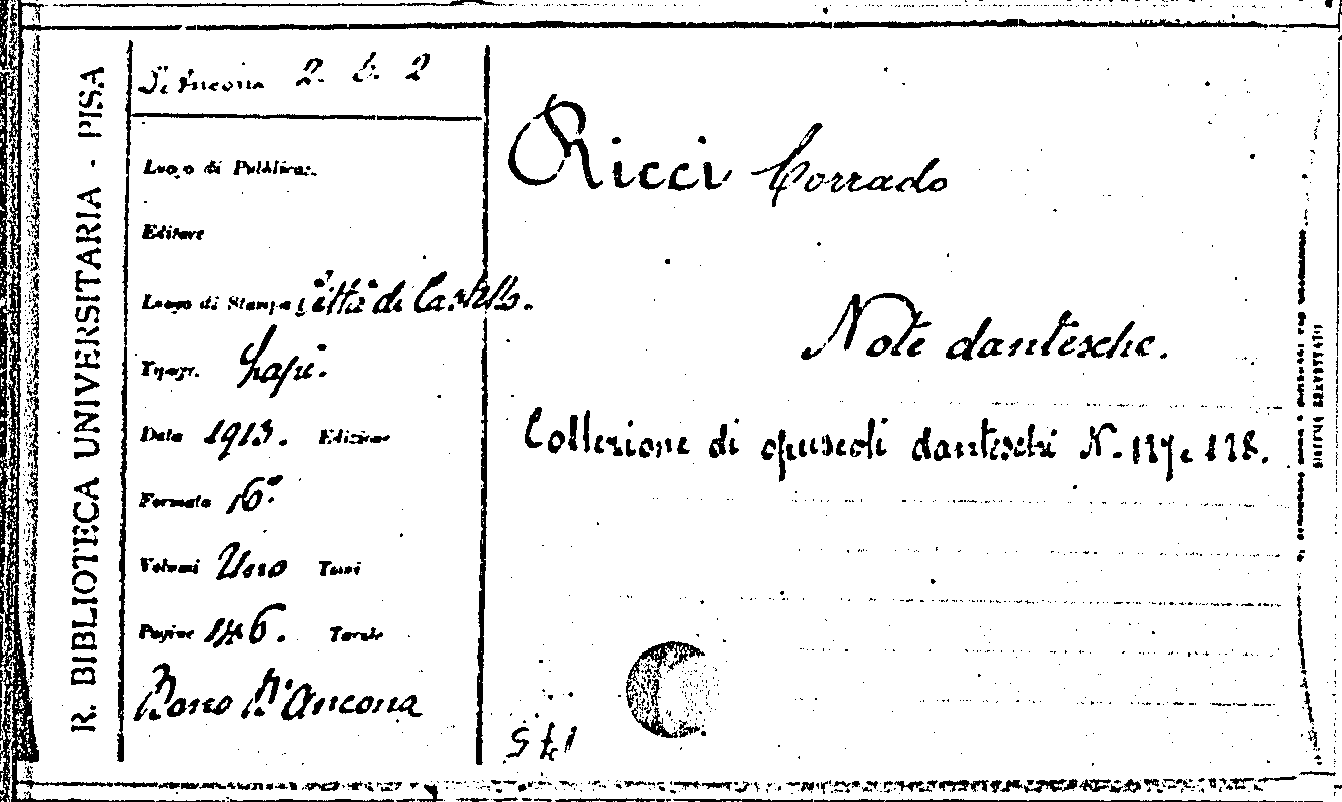 R. BIBLIOTECA UNIVERSITARIA - PISA
D'Ancona 2. 6. 2
Luogo di Pubblicaz.
Editore
Luogo di Stampa Città di Castello.
Tipogr. Lapi.
Data 1913. Edizione
Formato 16°
Volumi Uno Tomi
Pagine 146. Tavole
Dono D'Ancona
Ricci Corrado
Note dantesche.
Collezione di opuscoli danteschi N. 127 e 128.